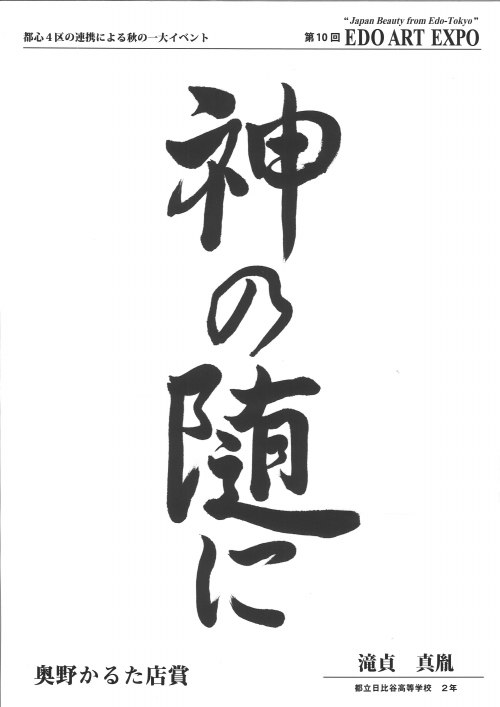 "Japan Beauty from Edo-Tokyo"
都心4区の連携による秋の一大イベント 第10回 EDO ART EXPO
神の随に
奥野かるた店賞
滝貞 真胤
都立日比谷高等学校 2年